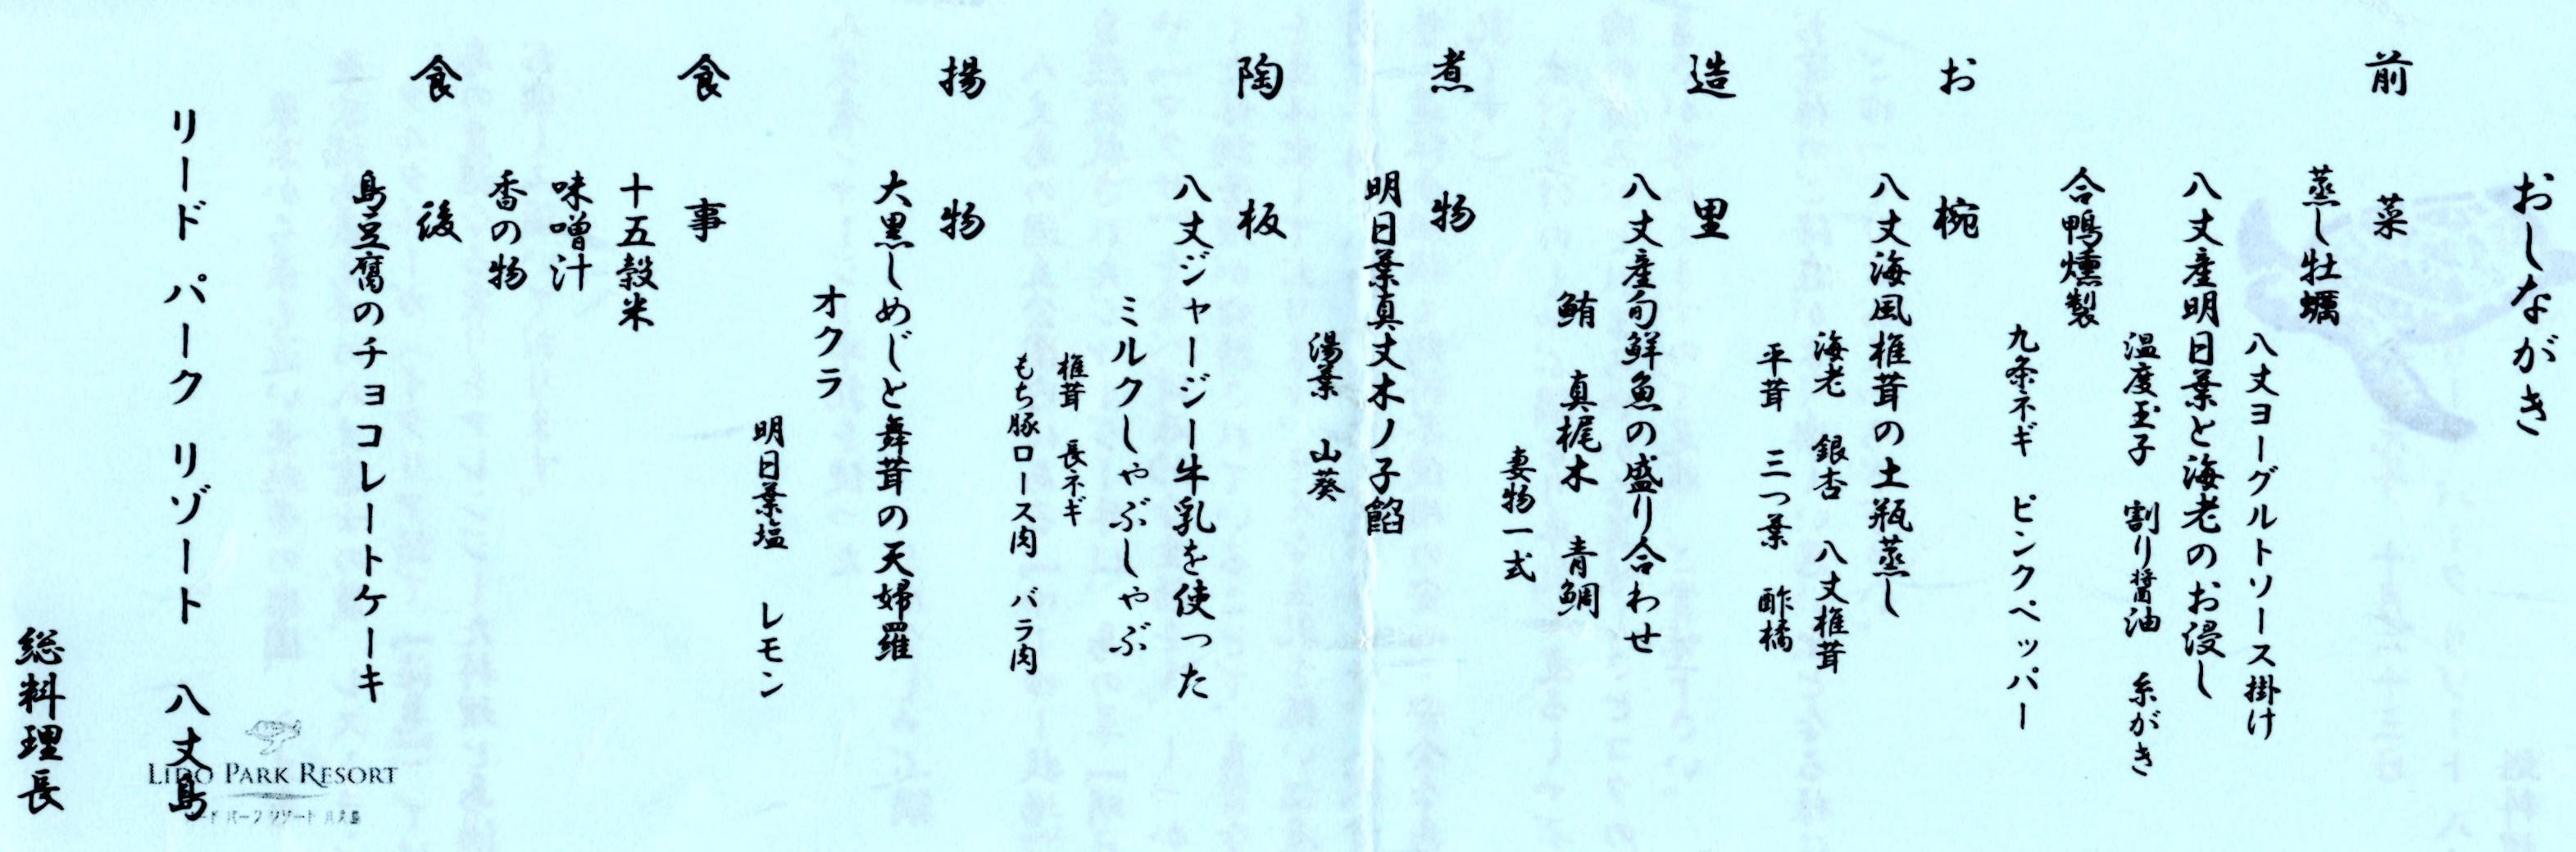 おしながき
前菜
蒸し牡蠣
八丈ヨーグルトソース掛け
八丈産明日葉と海老のお浸し
温度玉子 割り醤油 糸がき
合鴨燻製
九条ネギ ピンクペッパー
お椀
八丈海風椎茸の土瓶蒸し
海老 銀杏 八丈椎茸
平茸 三つ葉 酢橘
造里
八丈産旬鮮魚の盛り合わせ
鮪 真梶木 青鯛
妻物一式
煮物
明日葉真丈木ノ子餡
湯葉 山葵
陶板
八丈ジャージー牛乳を使った
ミルクしゃぶしゃぶ
椎茸 長ネギ
もち豚ロース肉 バラ肉
揚物
大黒しめじと舞茸の天婦羅
オクラ
明日葉塩 レモン
食事
十五穀米
味噌汁
香の物
食後
島豆腐のチョコレートケーキ
リード パーク リゾート 八丈島
総料理長
LIDO PARK RESORT
リード パーク リゾート 八丈島